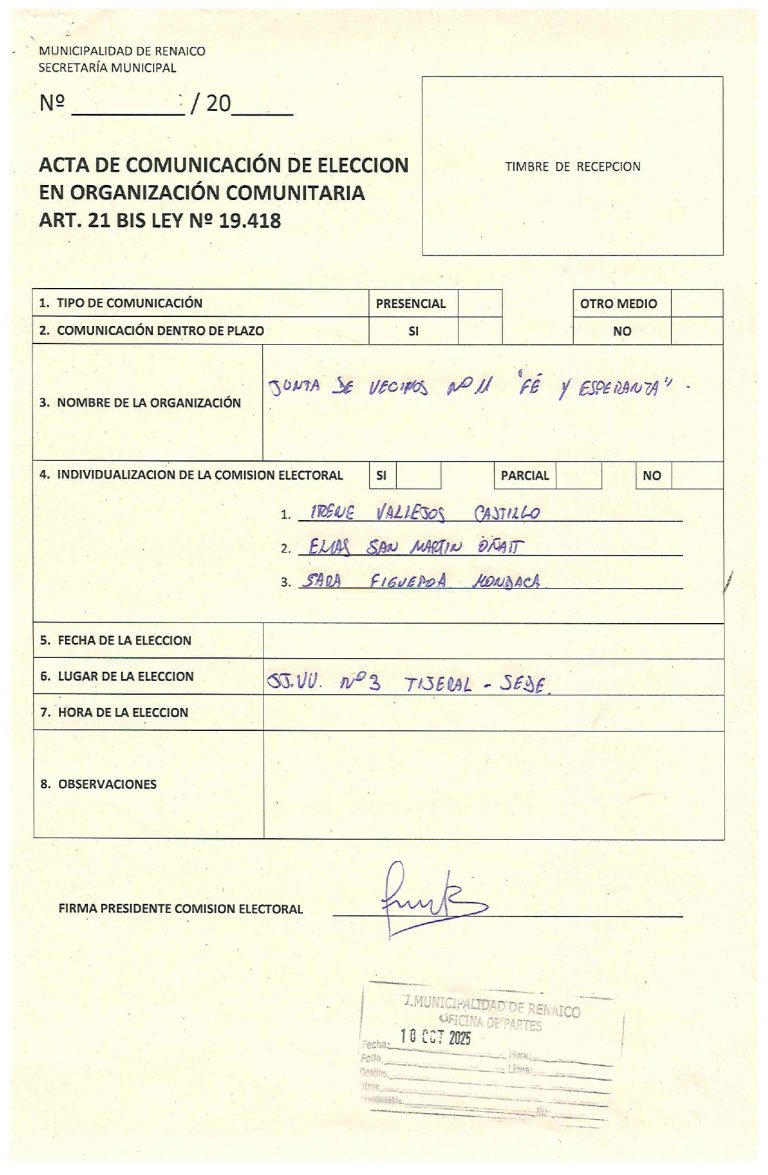 MUNICIPALIDAD DE RENAICO
SECRETARÍA MUNICIPAL
Nº ________ / 20____
TIMBRE DE RECEPCION
ACTA DE COMUNICACIÓN DE ELECCION
EN ORGANIZACIÓN COMUNITARIA
ART. 21 BIS LEY Nº 19.418
1. TIPO DE COMUNICACIÓN PRESENCIAL OTRO MEDIO
2. COMUNICACIÓN DENTRO DE PLAZO SI NO
3. NOMBRE DE LA ORGANIZACIÓN
JUNTA DE VECINOS Nº 11 "FÉ Y ESPERANZA".
4. INDIVIDUALIZACION DE LA COMISION ELECTORAL SI PARCIAL NO
1. IRENE VALLEJOS CASTILLO
2. ELIAS SAN MARTIN OÑATT
3. SARA FIGUEROA MONDACA
5. FECHA DE LA ELECCION
6. LUGAR DE LA ELECCION JJ.VV. Nº3 TIJERAL - SEDE.
7. HORA DE LA ELECCION
8. OBSERVACIONES
FIRMA PRESIDENTE COMISION ELECTORAL
I.MUNICIPALIDAD DE RENAICO
OFICINA DE PARTES
Fecha: 10 OCT 2025 Hora:
Folio Línea:
Destino
Otros